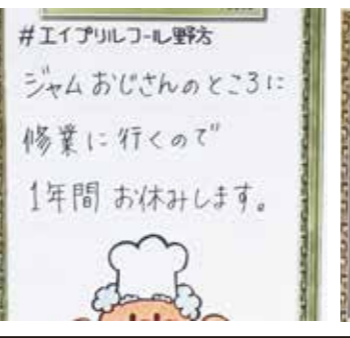 #エイプリルコール野方
ジャムおじさんのところに
修業に行くので
1年間 お休みします。